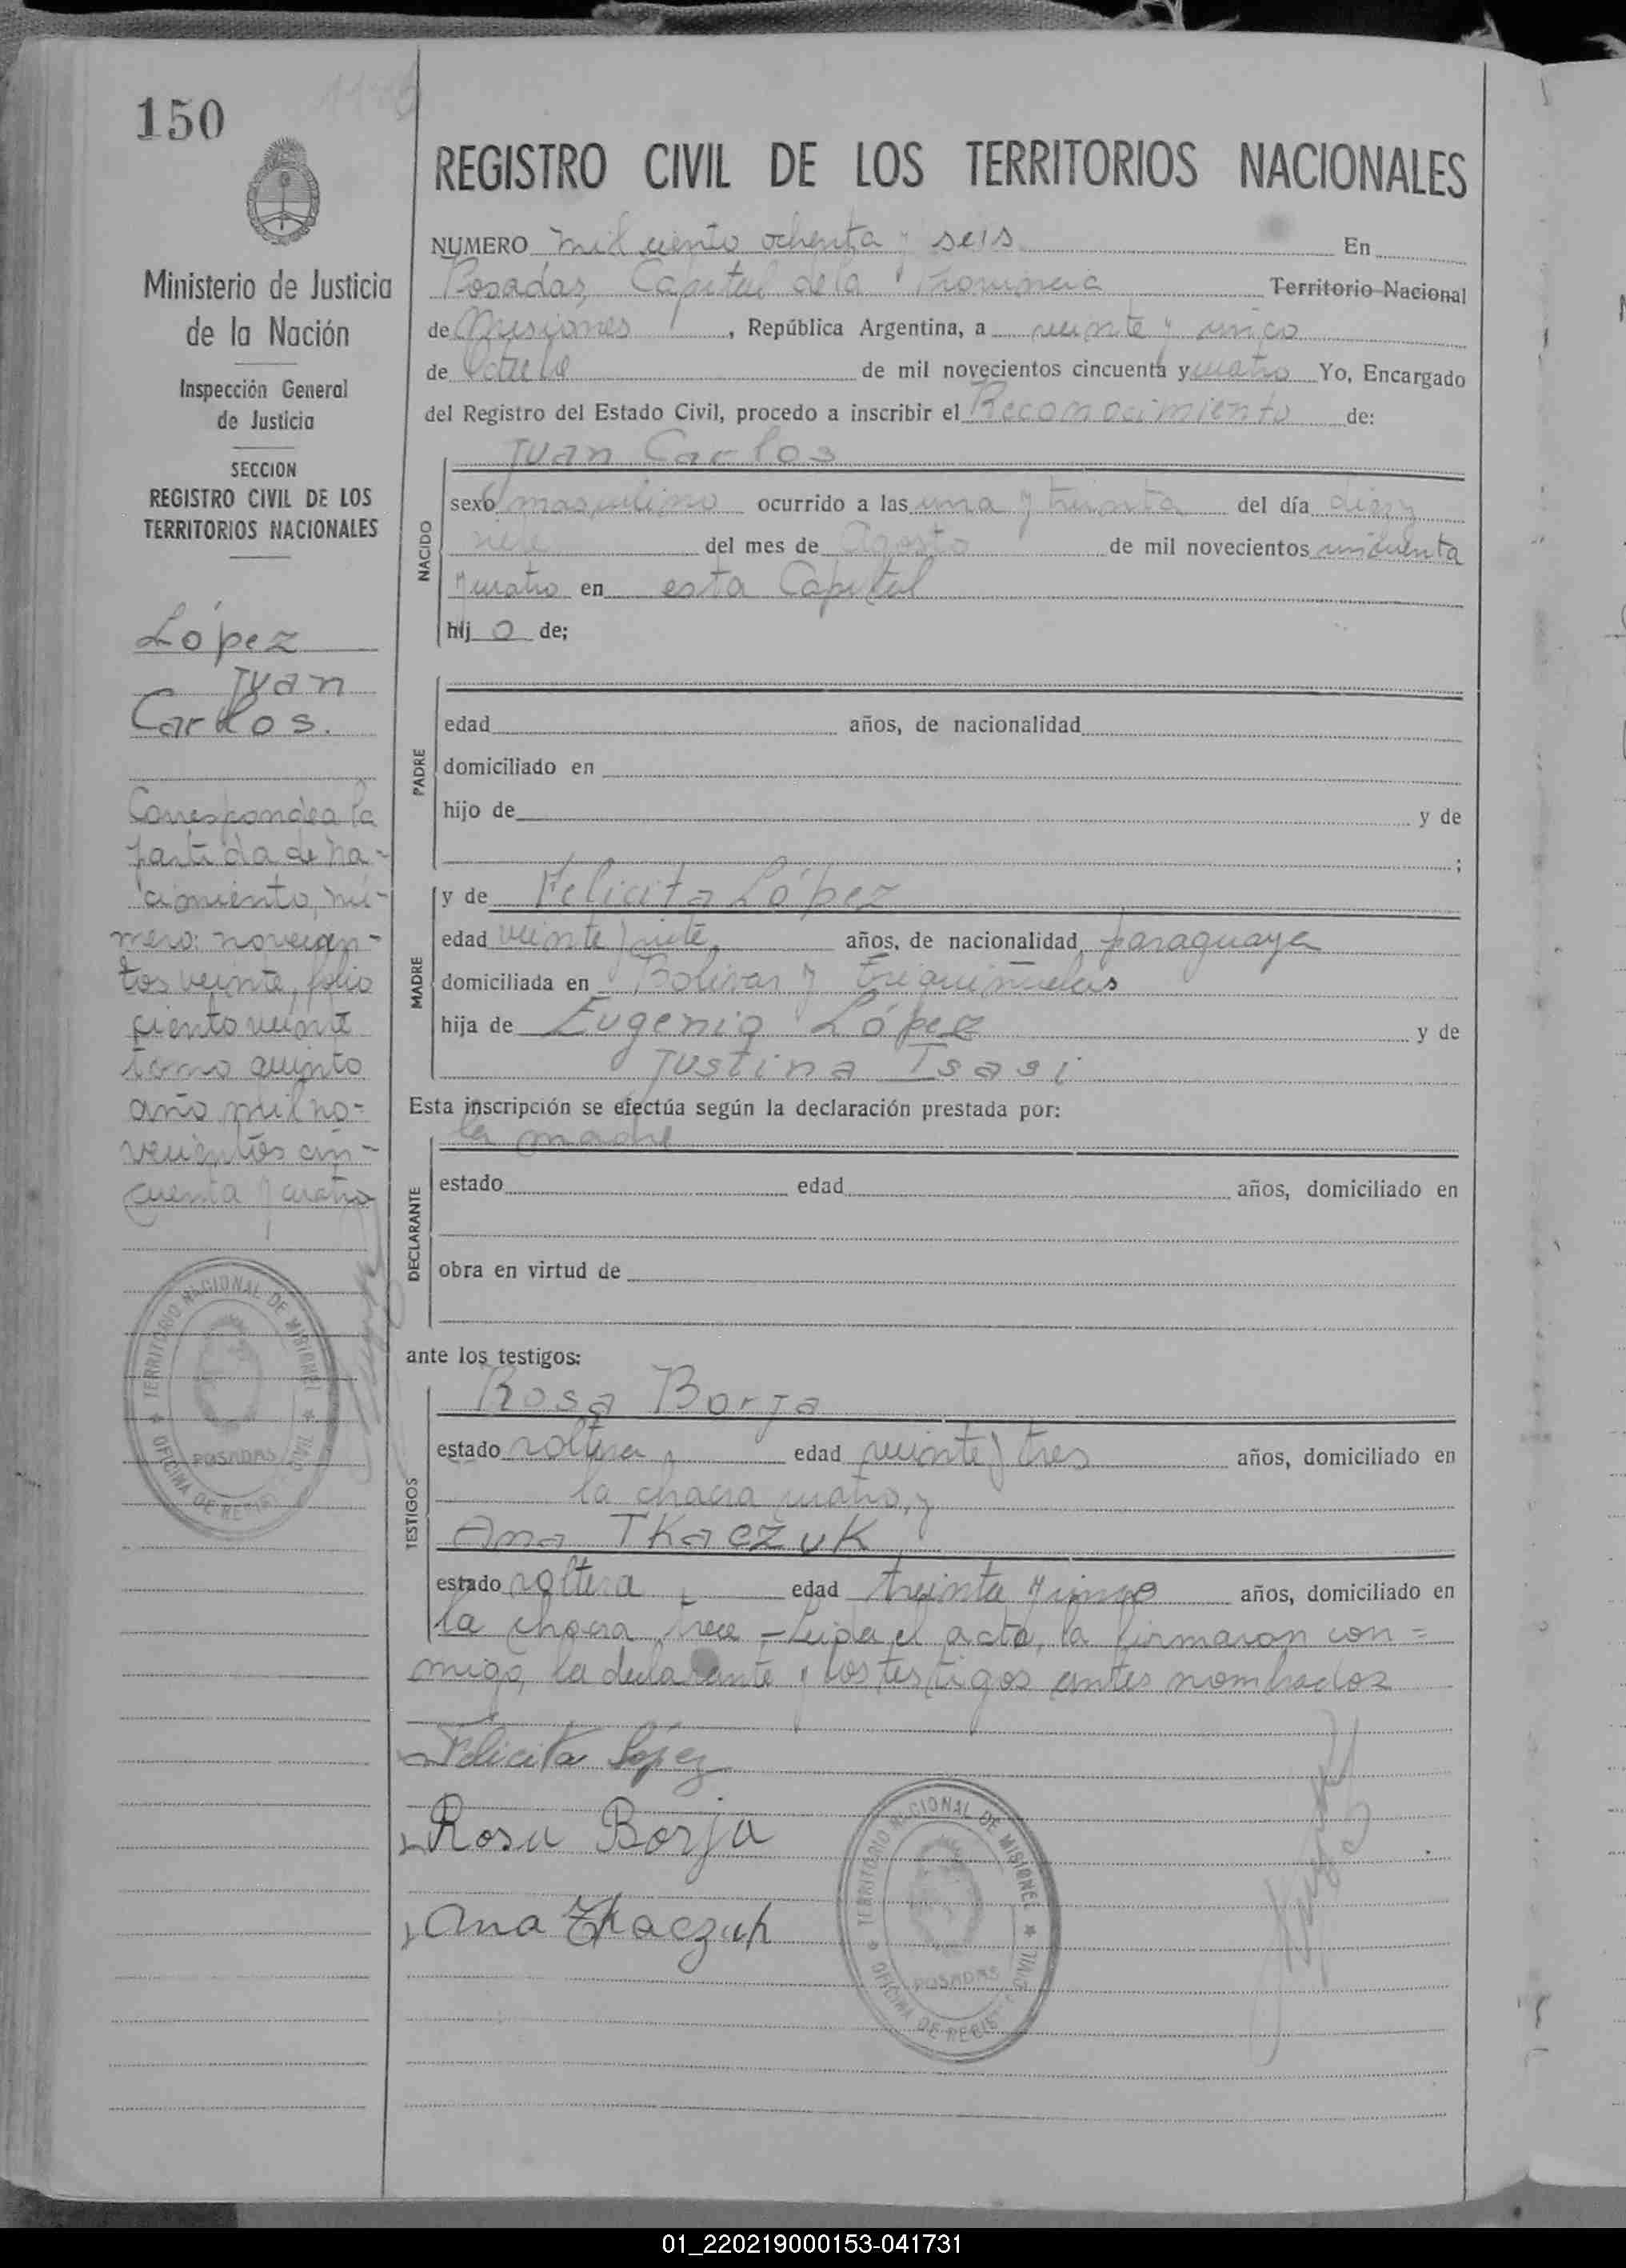 150
REGISTRO CIVIL DE LOS TERRITORIOS NACIONALES
Ministerio de Justicia
de la Nación
Inspección General
de Justicia
SECCION
REGISTRO CIVIL DE LOS
TERRITORIOS NACIONALES
López
Juan
Carlos.
Corresponde a la
partida de na-
cimiento, nú-
mero: novecien-
tos veinte, folio
ciento veinte
tomo quinto
año mil no-
vecientos cin-
cuenta y cuatro
TERRITORIO NACIONAL DE MISIONES
OFICINA DE REGIS CIVIL
POSADAS
NUMERO mil ciento ochenta y seis En
Posadas, Capital de la Provincia Territorio Nacional
de Misiones, República Argentina, a veinte y cinco
de Octubre de mil novecientos cincuenta y cuatro Yo, Encargado
del Registro del Estado Civil, procedo a inscribir el Reconocimiento de:
NACIDO
Juan Carlos
sexo masculino ocurrido a las una y treinta del día diez y
siete del mes de Agosto de mil novecientos cincuenta
y cuatro en esta Capital
hij o de;
PADRE
edad años, de nacionalidad
domiciliado en
hijo de y de
;
MADRE
y de Felicita López
edad veinte y siete, años, de nacionalidad paraguaya
domiciliada en Bolivar y
hija de Eugenio López y de
Justina Isasi
Esta inscripción se efectúa según la declaración prestada por:
DECLARANTE
la madre
estado edad años, domiciliado en
obra en virtud de
ante los testigos:
TESTIGOS
Rosa Borja
estado soltera, edad veinte y tres años, domiciliado en
la chacra cuatro, y
Ana Tkaczuk
estado soltera, edad treinta y cinco años, domiciliado en
la chacra trece - Leida el acta, la firmaron con=
migo, la declarante y los testigos antes nombrados
Felicita López
Rosa Borja
Ana Tkaczuk
TERRITORIO NACIONAL DE MISIONES
OFICINA DE REGIS CIVIL
POSADAS
01_220219000153-041731